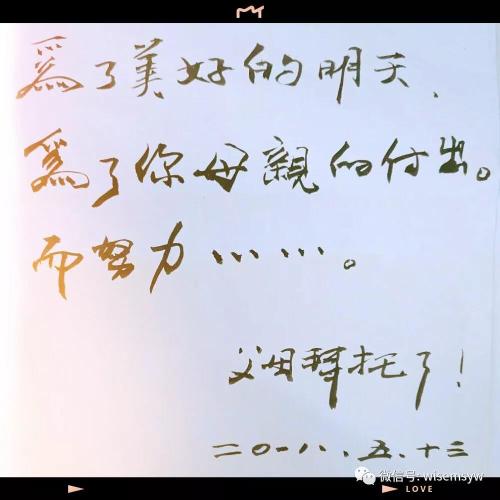 爲了美好的明天、
爲了你母親的付出。
而努力……。
父母拜托了！
二〇一八、五、十三
微信号: wisemsyw
LOVE